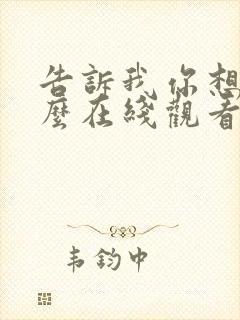 告訴我你想
麼在綫觀看
韦鈞中